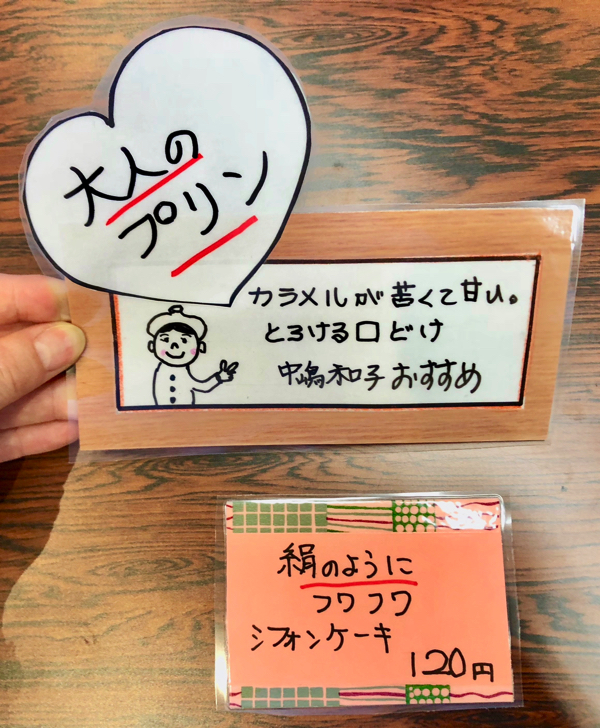 大人の
プリン
カラメルが苦くて甘い。
とろける口どけ
中嶋和子おすすめ
絹のように
フワフワ
シフォンケーキ
120円